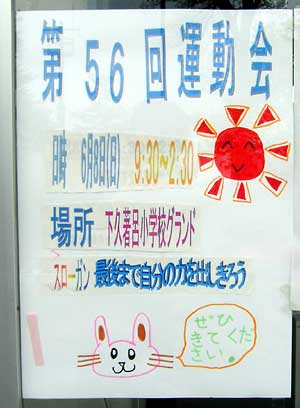 第56回運動会
日時 6月8日(日) 9:30~2:30
場所 下久著呂小学校グランド
スローガン 最後まで自分の力を出しきろう
ぜひ
きてくだ
さい。